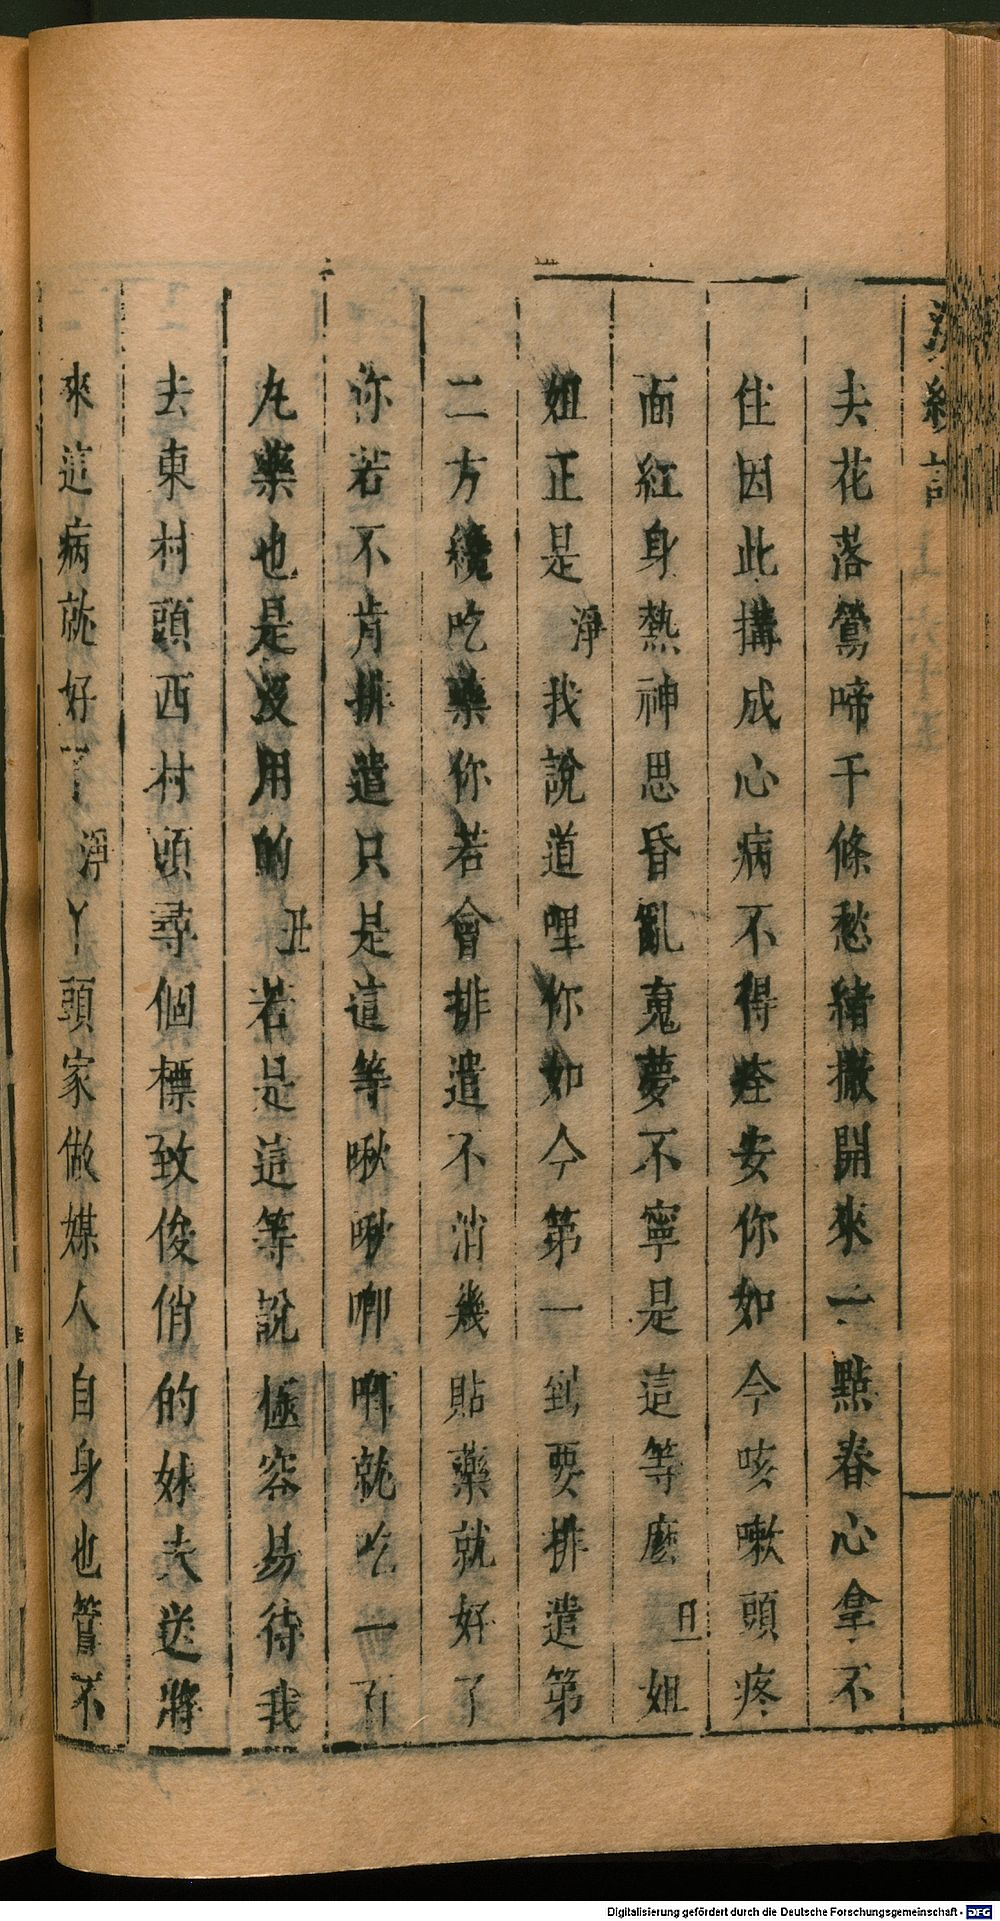 夫花落鶯啼千條愁緒撇開來一點春心拿不
住因此搆成心病不得痊安你如今咳嗽頭疼
面紅身熱神思昏亂䰟夢不寧是這等麽旦姐
姐正是淨我說道哩你如今第一到要排遣第
二方纔吃藥你若會排遣不消幾貼藥就好了
你若不肯排遣只是這等啾啾唧唧就吃一百
丸藥也是沒用的丑若是這等說極容易待我
去東村頭西村頭尋個標致俊俏的妹夫送將
來這病就好了淨丫頭家做媒人自身也管不
Digitalisierung gefördert durch die Deutsche Forschungsgemeinschaft - DFG